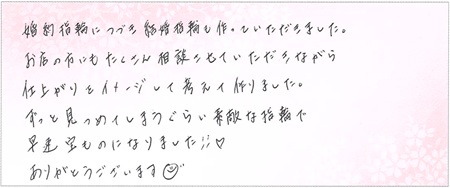 婚約指輪につづき結婚指輪も作っていただきました。
お店の方にもたくさん相談させていただきながら
仕上がりをイメージして考えて作りました。
ずっと見つめてしまうぐらい素敵な指輪で
早速宝ものになりました!!♡
ありがとうございます